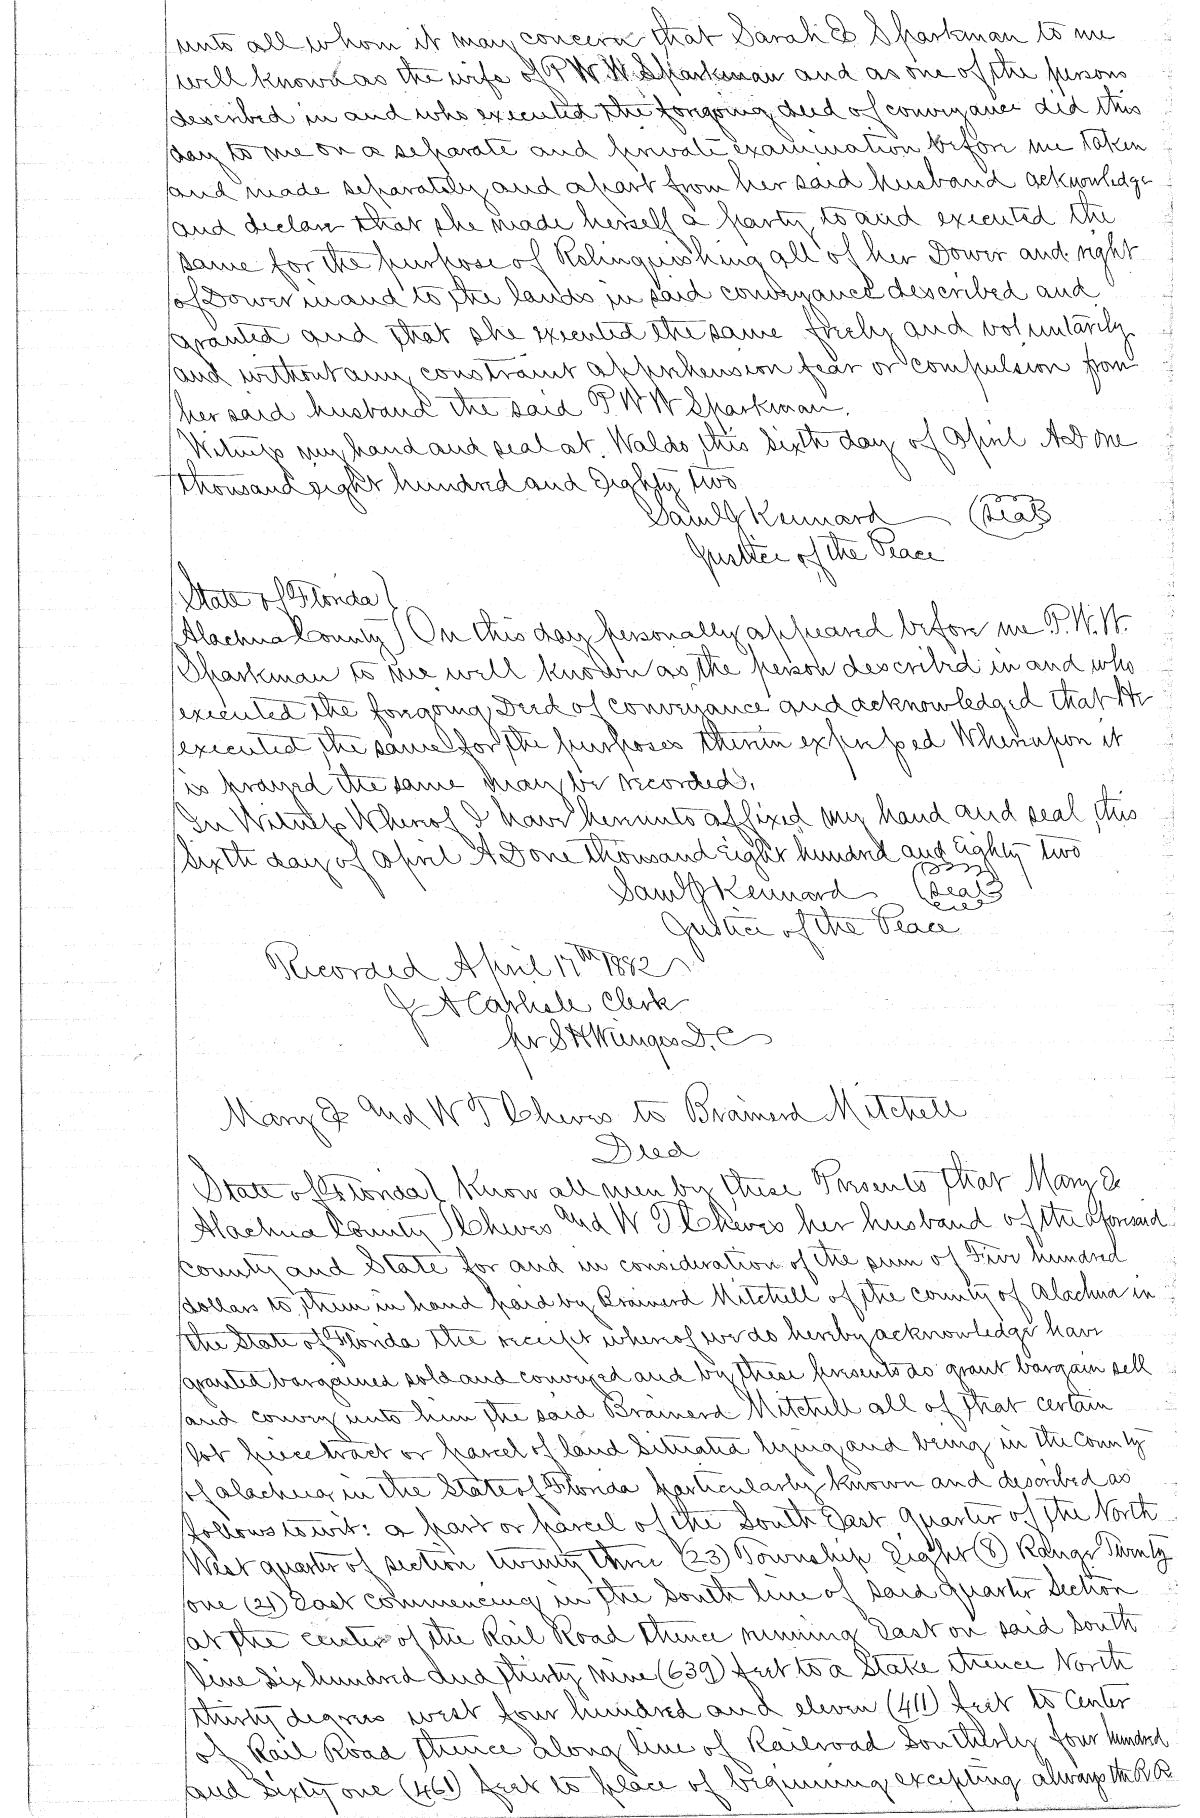 unto all whom it may concern that Sarah E Sparkman to me
well known as the wife of P W W Sparkman and as one of the persons
described in and who executed the forgoing deed of conveyance did this
day to me on a separate and private examination before me taken
and made separately and apart from her said husband acknowledge
and declare that she made herself a party to and executed the
same for the purpose of Relinquishing all of her Dower and right
of Dower in and to the lands in said conveyance described and
granted and that she executed the same freely and voluntarily
and without any constraint apprehension fear or compulsion from
her said husband the said P W W Sparkman.
Witness my hand and seal at Waldo this Sixth day of April A D one
thousand eight hundred and Eighty two
Saml J Kennard (Seal)
Justice of the Peace
State of Florida
Alachua County On this day personally appeared before me P. W. W.
Sparkman to me well known as the person described in and who
executed the forgoing Deed of conveyance and acknowledged that He
executed the same for the purposes therein expressed Whereupon it
is prayed the same may be recorded.
In Witness Whereof I have hereunto affixed my hand and seal this
Sixth day of April A D one thousand Eight hundred and Eighty two
Saml J Kennard (Seal)
Justice of the Peace
Recorded April 17th 1882
J A Carlisle Clerk
pr S H Wienges D. C
Mary E and W T Cheves to Brainerd Mitchell
Deed
State of Florida Know all men by these Presents that Mary E
Alachua County Cheves and W T Cheves her husband of the aforesaid
County and State for and in consideration of the sum of Five hundred
dollars to them in hand paid by Brainerd Mitchell of the county of Alachua in
the State of Florida the receipt whereof we do hereby acknowledge have
granted bargained sold and conveyed and by these presents do grant bargain sell
and convey unto him the said Brainerd Mitchell all of that certain
lot piece tract or parcel of land Situated lying and being in the County
of Alachua in the State of Florida particularly known and described as
follows to wit: a part or parcel of the South East Quarter of the North
West quarter of section twenty three (23) Township Eight (8) Range Twenty
one (21) East commencing in the South line of said quarter Section
at the center of the Rail Road thence running East on said South
line Six hundred and thirty nine (639) feet to a Stake thence North
thirty degrees west four hundred and eleven (411) feet to center
of Rail Road thence along line of Railroad Southerly four hundred
and Sixty one (461) feet to place of beginning excepting always the R R